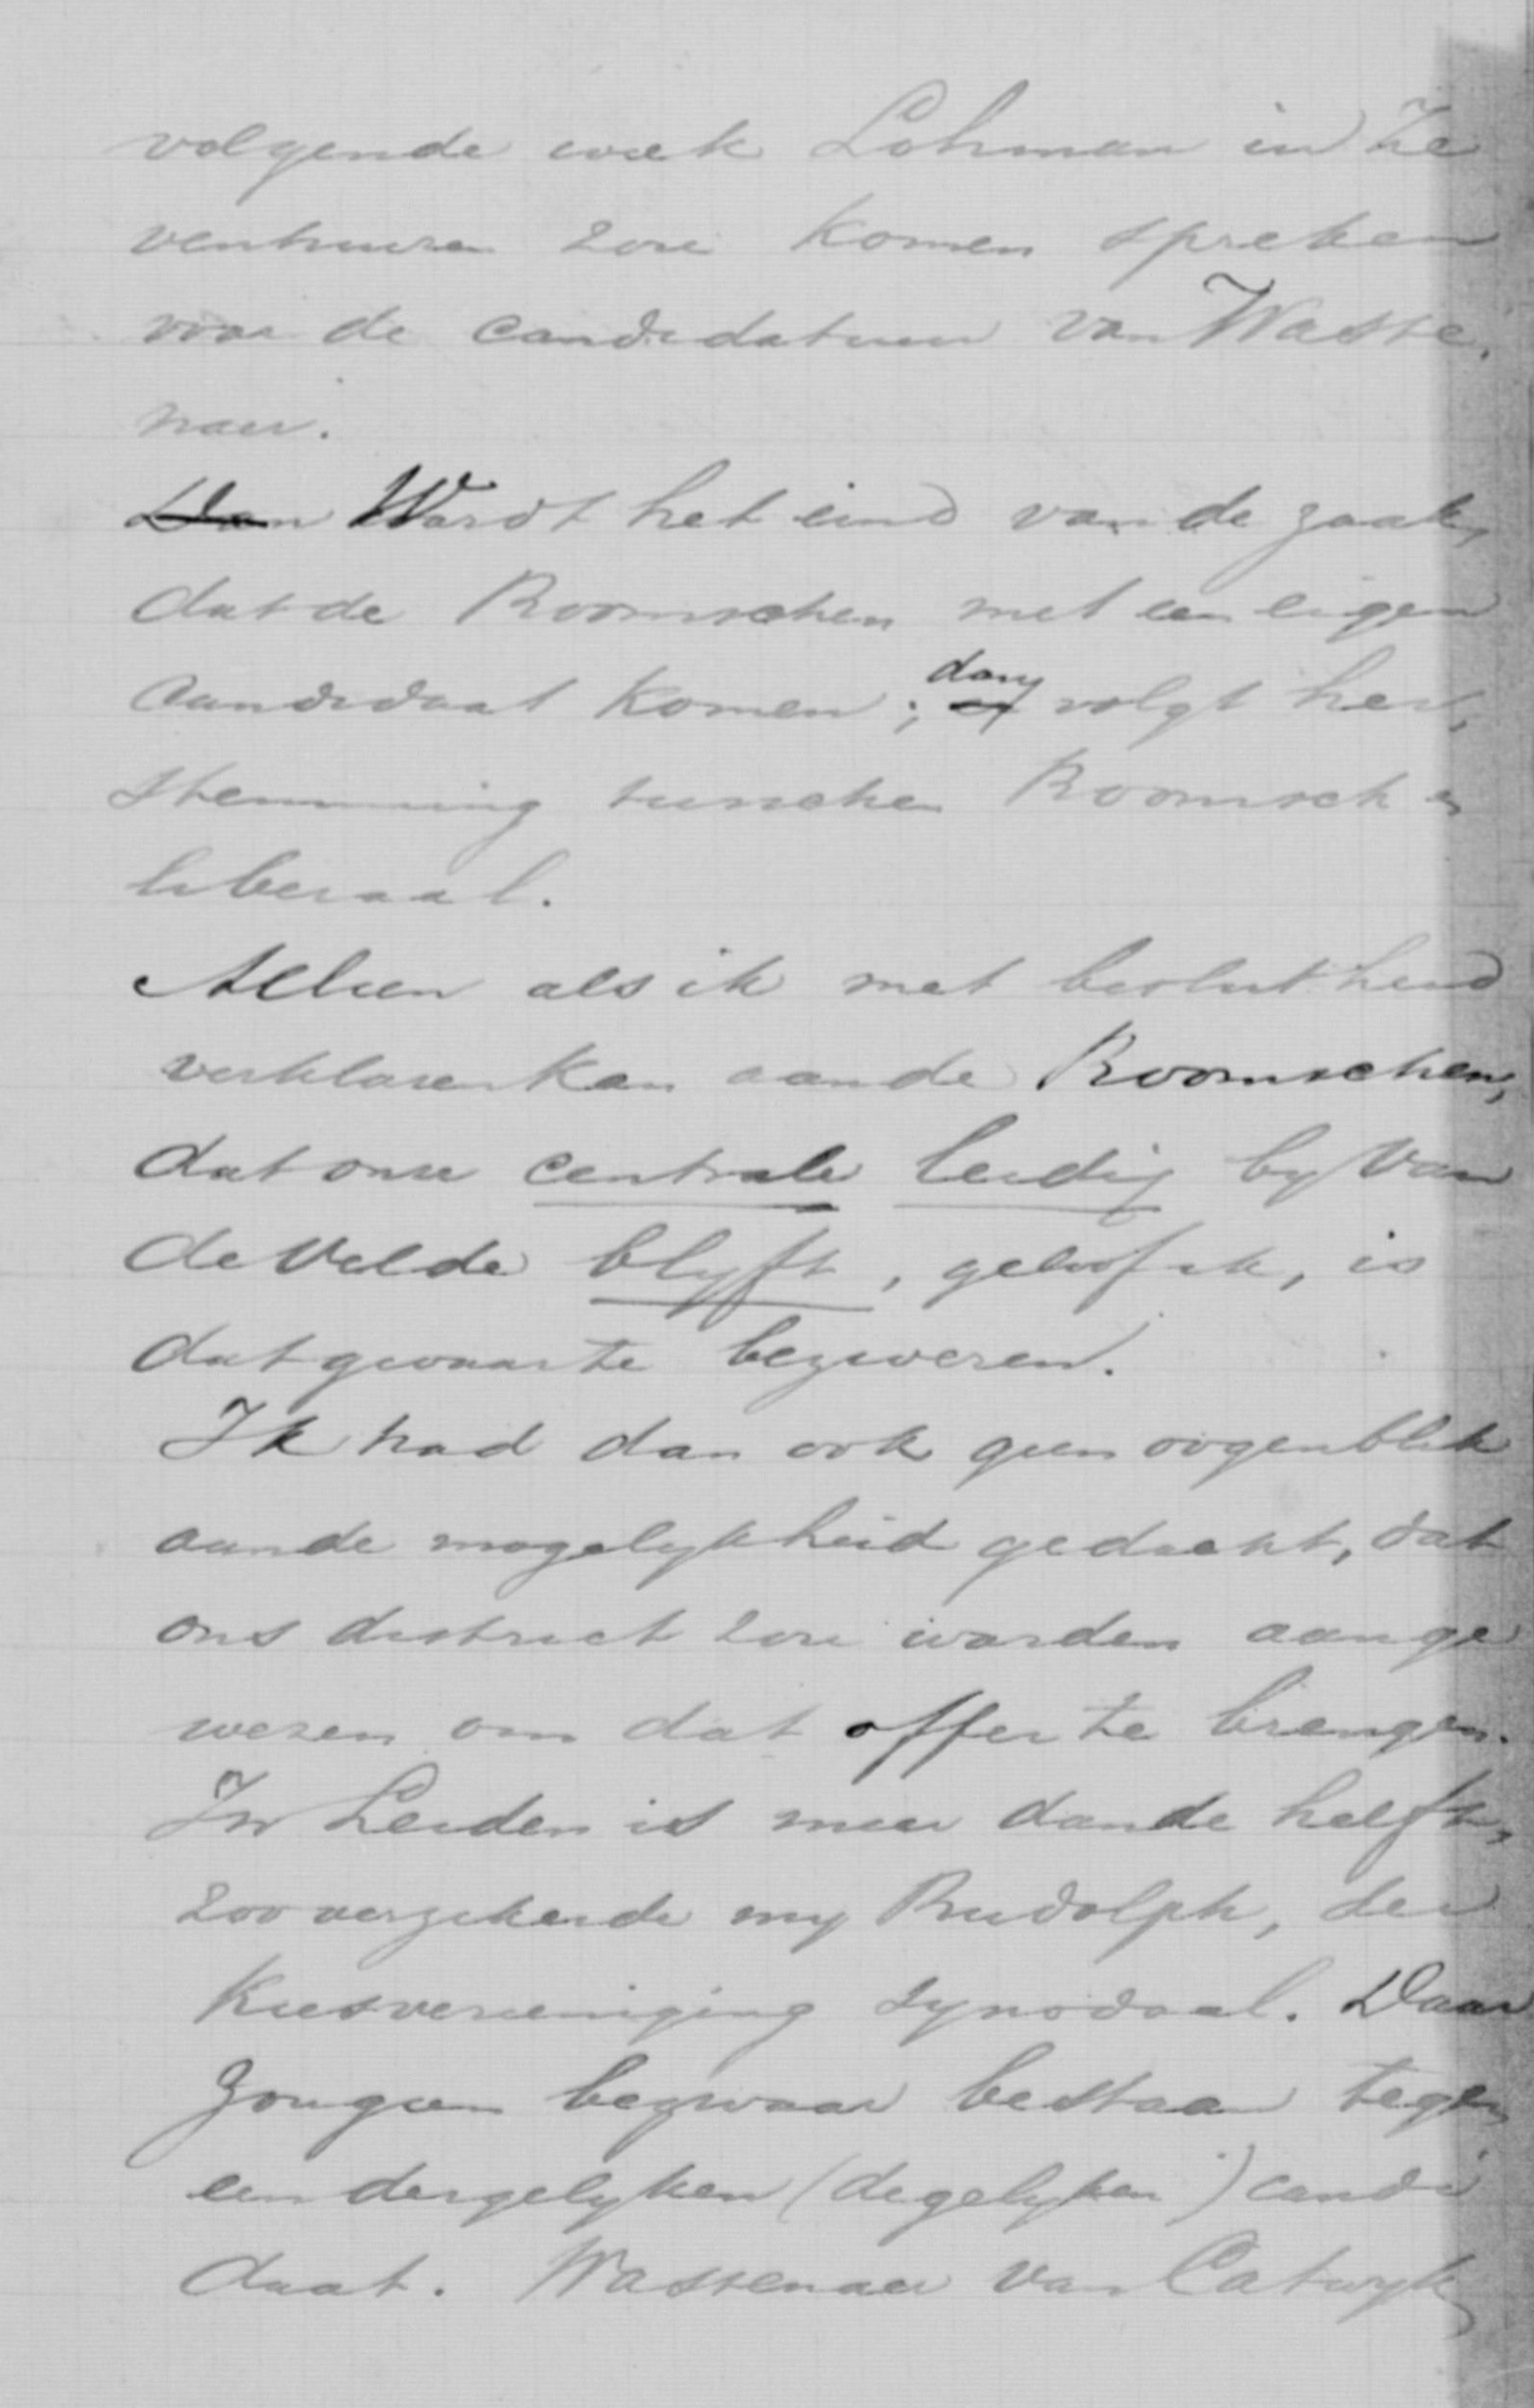 volgende week Lohman in Ze
venhuizen zou komen spreken
voor de candidatuur van Wasse,
naer.
Dan Wordt het eind van de zaak,
dat de Roomschen met een eigen
Candidaat komen; dan volgt her,
stemming tusschen Roomsch en
liberaal.
Alleen als ik met beslistheid
verklaren kan aan de Roomschen,
dat onze centrale leidig by Van
de Velde blyft, geloof ik, is
dat gevaar te bezweren.
Ik had dan ook geen oogenblik
aan de mogelykheid gedacht, dat
ons district zou worden aange
wezen om dat offer te brengen.
In Leiden is meer dan de helft,
zoo verzekerde my Rudolph, der
Kiesvereeniging synodaal. Daar
zou geen bezwaar bestaan tegen
een dergelyken (degelyken) candi
daat. Wassenaer van Catwyk